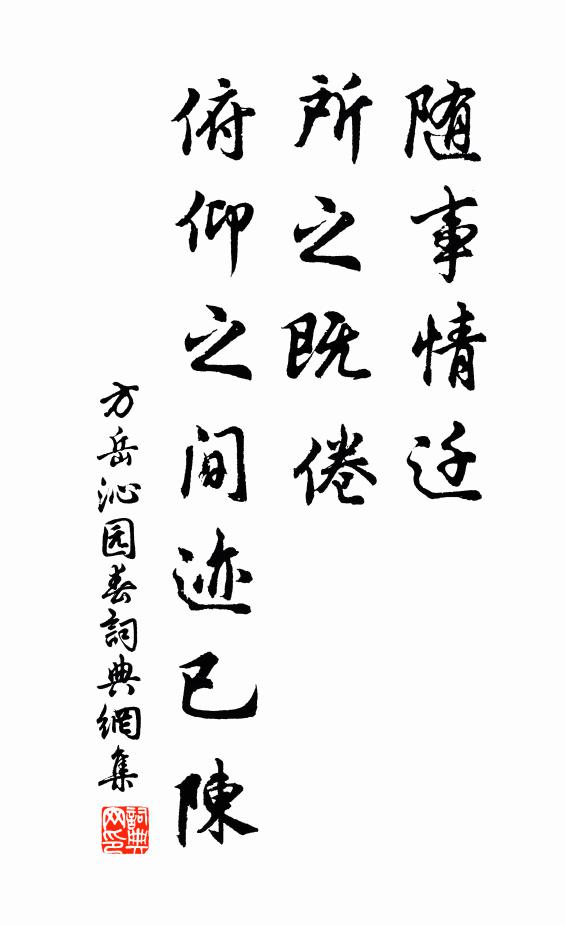 随事情迁
所之既倦
俯仰之间迹已陳
方岳沁园春詞典網集
詞典
网印